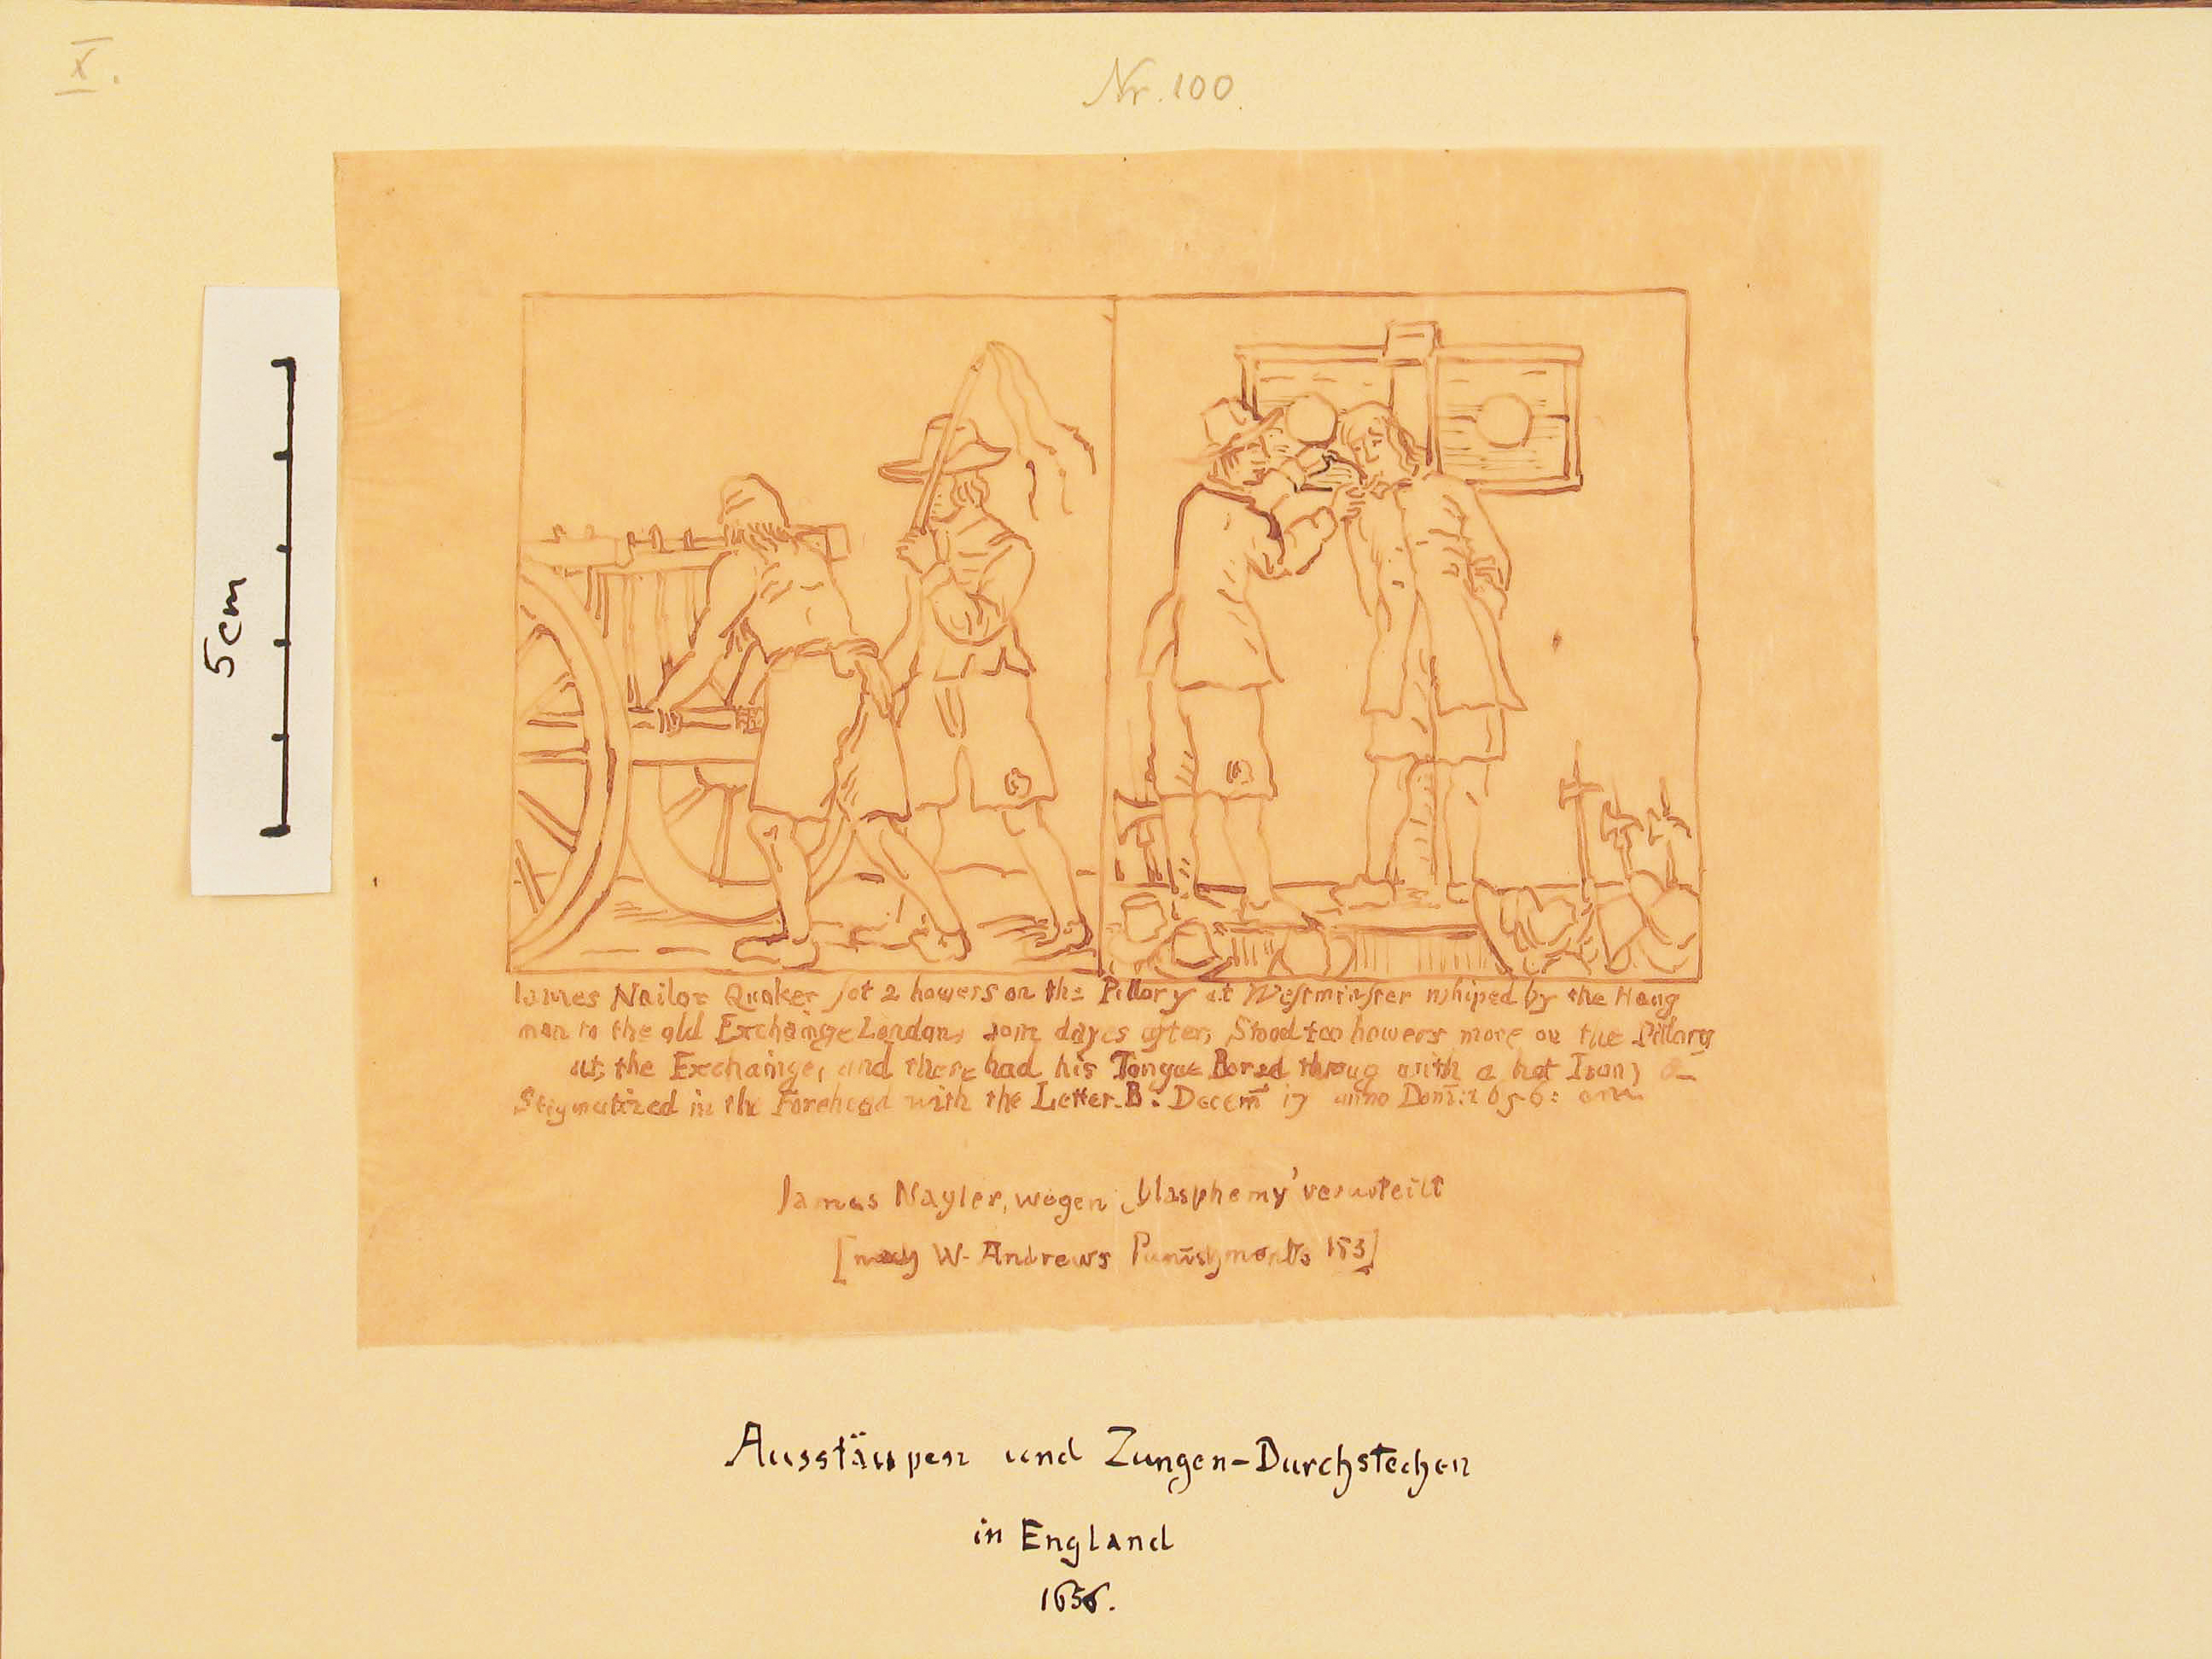 X.
Nr. 100.
5cm
Iames Nailor Quaker sot 2 howers on the Pillory at Westminster whiped by the Hang
man to the old Exchainge London, som dayes after, Stood too howers more on the Pillory
at the Exchainge, and there had his Tongue Bored throug with a hot Iron,
Stigmatized in the Forehead with the Letter. B: Decem̄ 17 anno Dom̄: 1656:
James Nayler, wegen ‚blasphemy' verurteilt
[nach W. Andrews Punishments 153]
Ausstäupen und Zungen-Durchstechen
in England
1656.